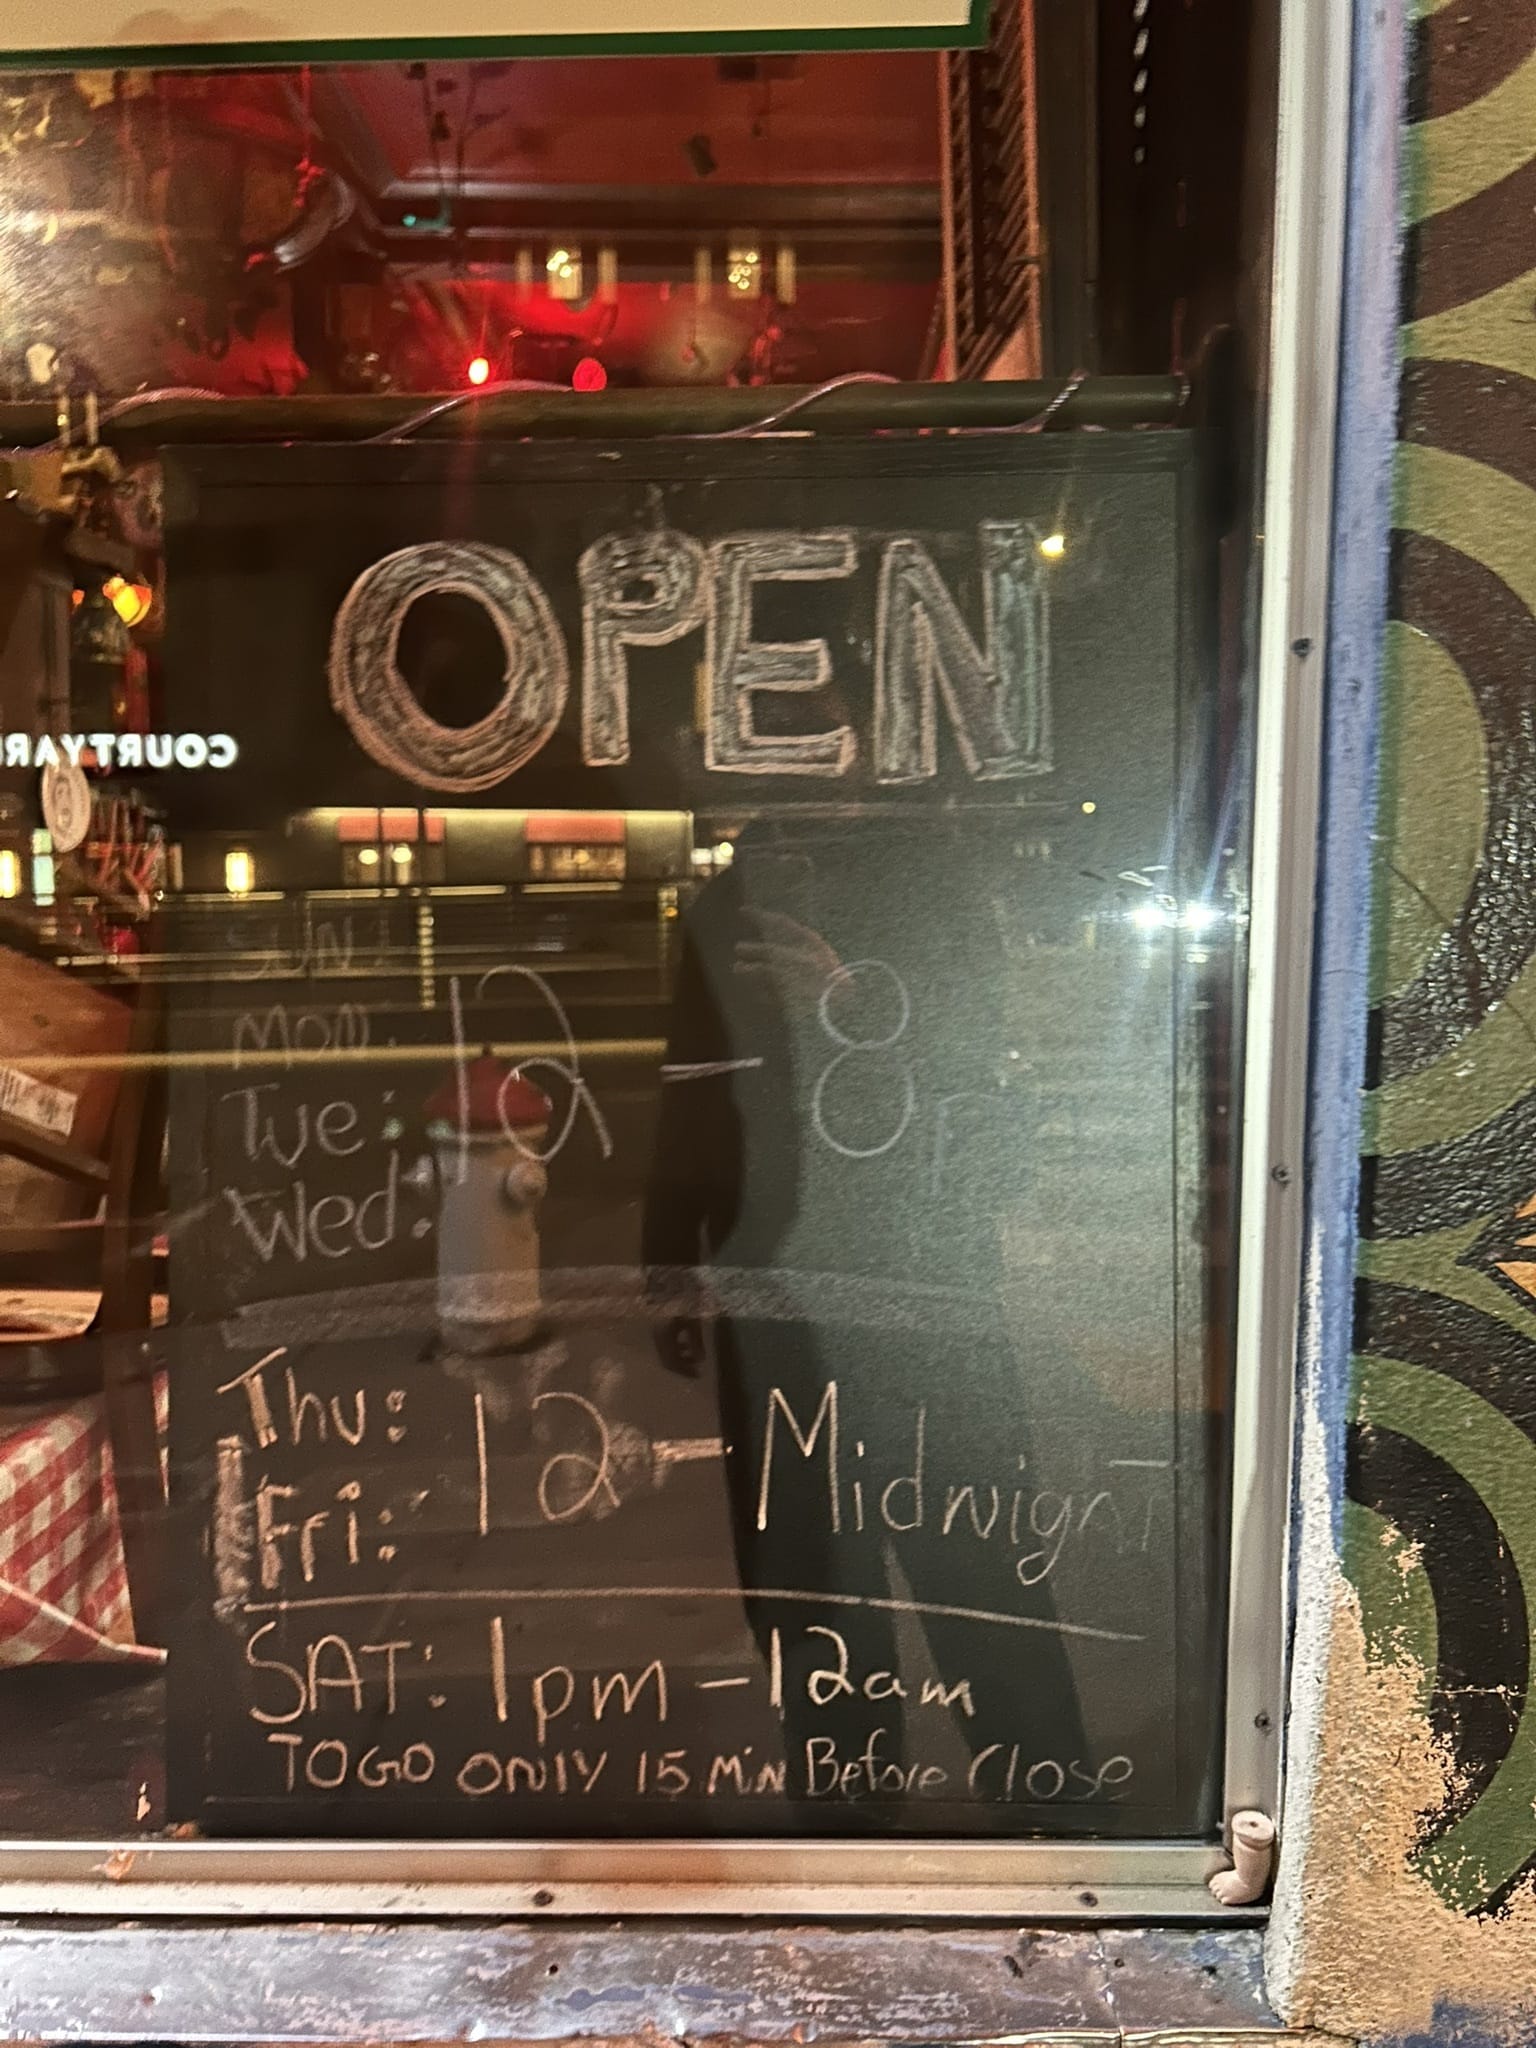 OPEN
COURTYAR
SUN:
MON:
Tue:
Wed:
12 - 8pm
Thu:
Fri:
12 - Midnight
SAT: 1pm - 12am
TO GO ONLY 15 MIN Before Close